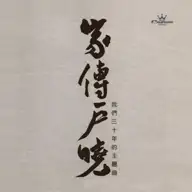 家傳戶曉
我們三十年的主題曲